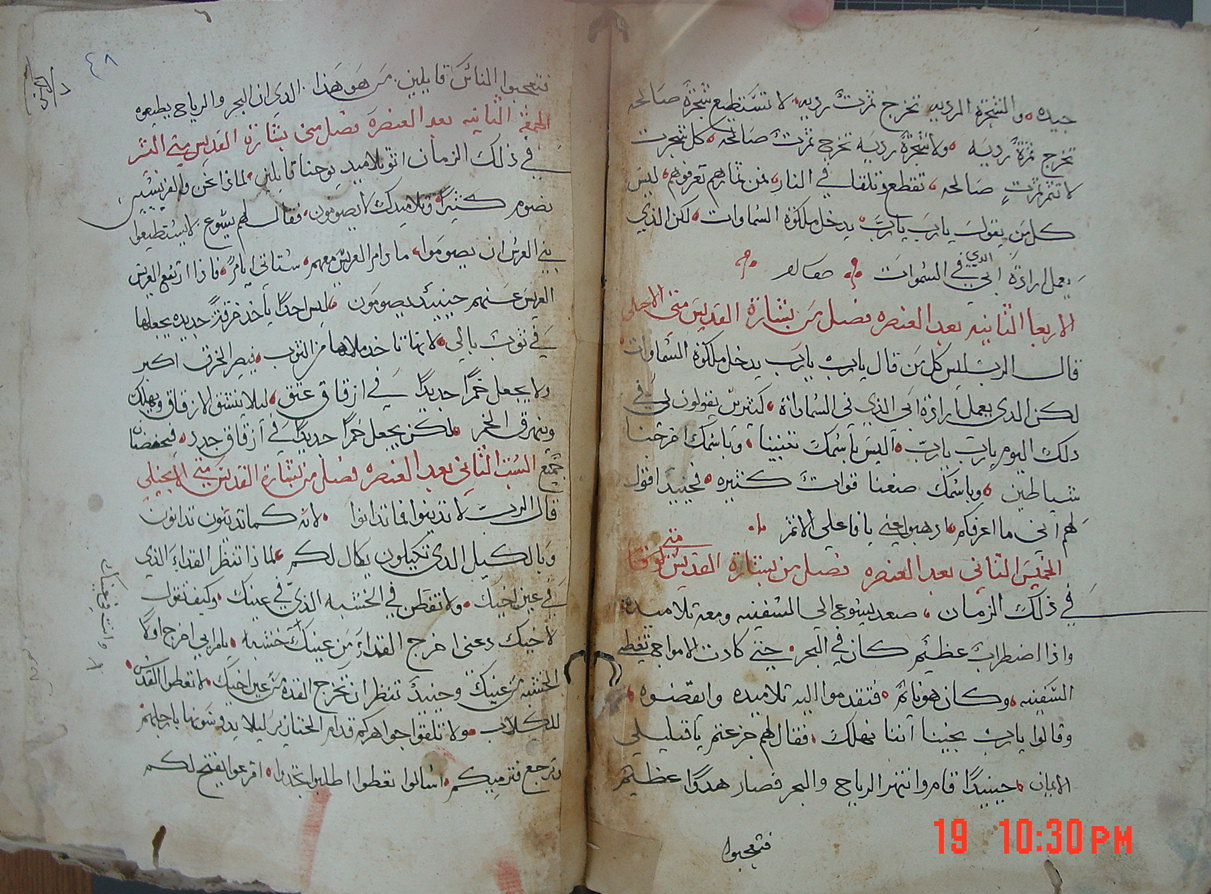 جيده والشجرة الرديه تخرج ثمرت رديه لا تستطيع شجرة صالحه
تخرج ثمرة رديه ولا شجرة رديه تخرج ثمرت صالحه كل شجرت
لا تثمر ثمرت صالحه تقطع وتلقا في النار فمن ثمارهم تعرفوهم ليس
كل من يقول يارب يارب يدخل ملكوة السماوات لكن الذي
يعمل ارادة ابي الدي في السموات
الاربعا الثانيه بعد العنصره فصل من بشارة القديس متى الانجلي
قال الرب ليس كل من قال يارب يارب يدخل ملكوة السماوات
لكن الدي يعمل ارادة ابي الذي في السماواة كثيرين يقولون لي في
دلك اليوم يارب يارب اليس باسمك تنبينا وباسمك اخرجنا
شياطين وباسمك صنعنا قوات كثيره فحينيدا اقول
لهم اني ما اعرفكم اذهبوا عني يا فاعلي الاثم
متى
الخميس الثاني بعد العنصره فصل من بشارة القديس لوقا
في ذلك الزمان صعد يسوع الى السفينه ومعه تلاميده
واذا اضطراب عظيم كان في البحر حتى كادت الامواج تغطي
السفينه وكان هو نائم فتقدموا اليه تلاميده وايقضوه
وقالوا يارب نجينا اننا نهلك فقال لهم جزعتم يا قليلي
الايمان حينيدا قام وانتهر الرياح والبحر فصار هدوا عظيم
فتعجبوا
٤٨
فتعجبوا الناس قايلين من هو هذا الدي ان البحر والرياح يطيعوه
الجمعه الثانيه بعد العنصره فصل من بشارة القديس متى البشير
في ذلك الزمان اتو تلاميد يوحنا قايلين لماذا نحن والفريسيين
نصوم كثيرا وتلاميدك لا يصومون فقال لهم يسوع لا يستطيعوا
بني العرس ان يصوموا ما دام العريس معهم ستاتي ايام فاذا ارتفع العريس
العريس عنهم حينيد يصومون ليس احدا ياخذ خرقة جديده يجعلها
في ثوب بالي لانها تاخد ملاها من الثوب فيصير الخرق اكبر
ولا يجعل خمرا جديدا في ازقاق عتق ليلا تنشق الازقاق وتهلك
وتهرق الخمر لكن يجعل خمرا جديدا في ازقاق جدد فيحفضان
جميع السبت الثاني بعد العنصره فصل من بشارة القديس متى الانجيلي
قال الرب لا تدينوا فما تدانوا لانه كما تدينون تدانون
وبالكيل الدي تكيلون يكال لكم لماذا تنظر القداء الذي
في عين اخيك ولا تفطن في الخشبه الذي في عينك وكيف تقول
لاخيك دعني اخرج القداء من عينك خشبه يا مرايي اخرج اولا
الخشبه من عينك وحينيد تنظر ان تخرج القدا من عين اخيك لا تعطوا القدس
للكلاب ولا تلقوا جواهركم قدام الخنازير ليلا يدوسونها بارجلهم
وترجع فتزميكم اسالوا تعطوا اطلبوا تجدوا اقرعوا يفتح لكم